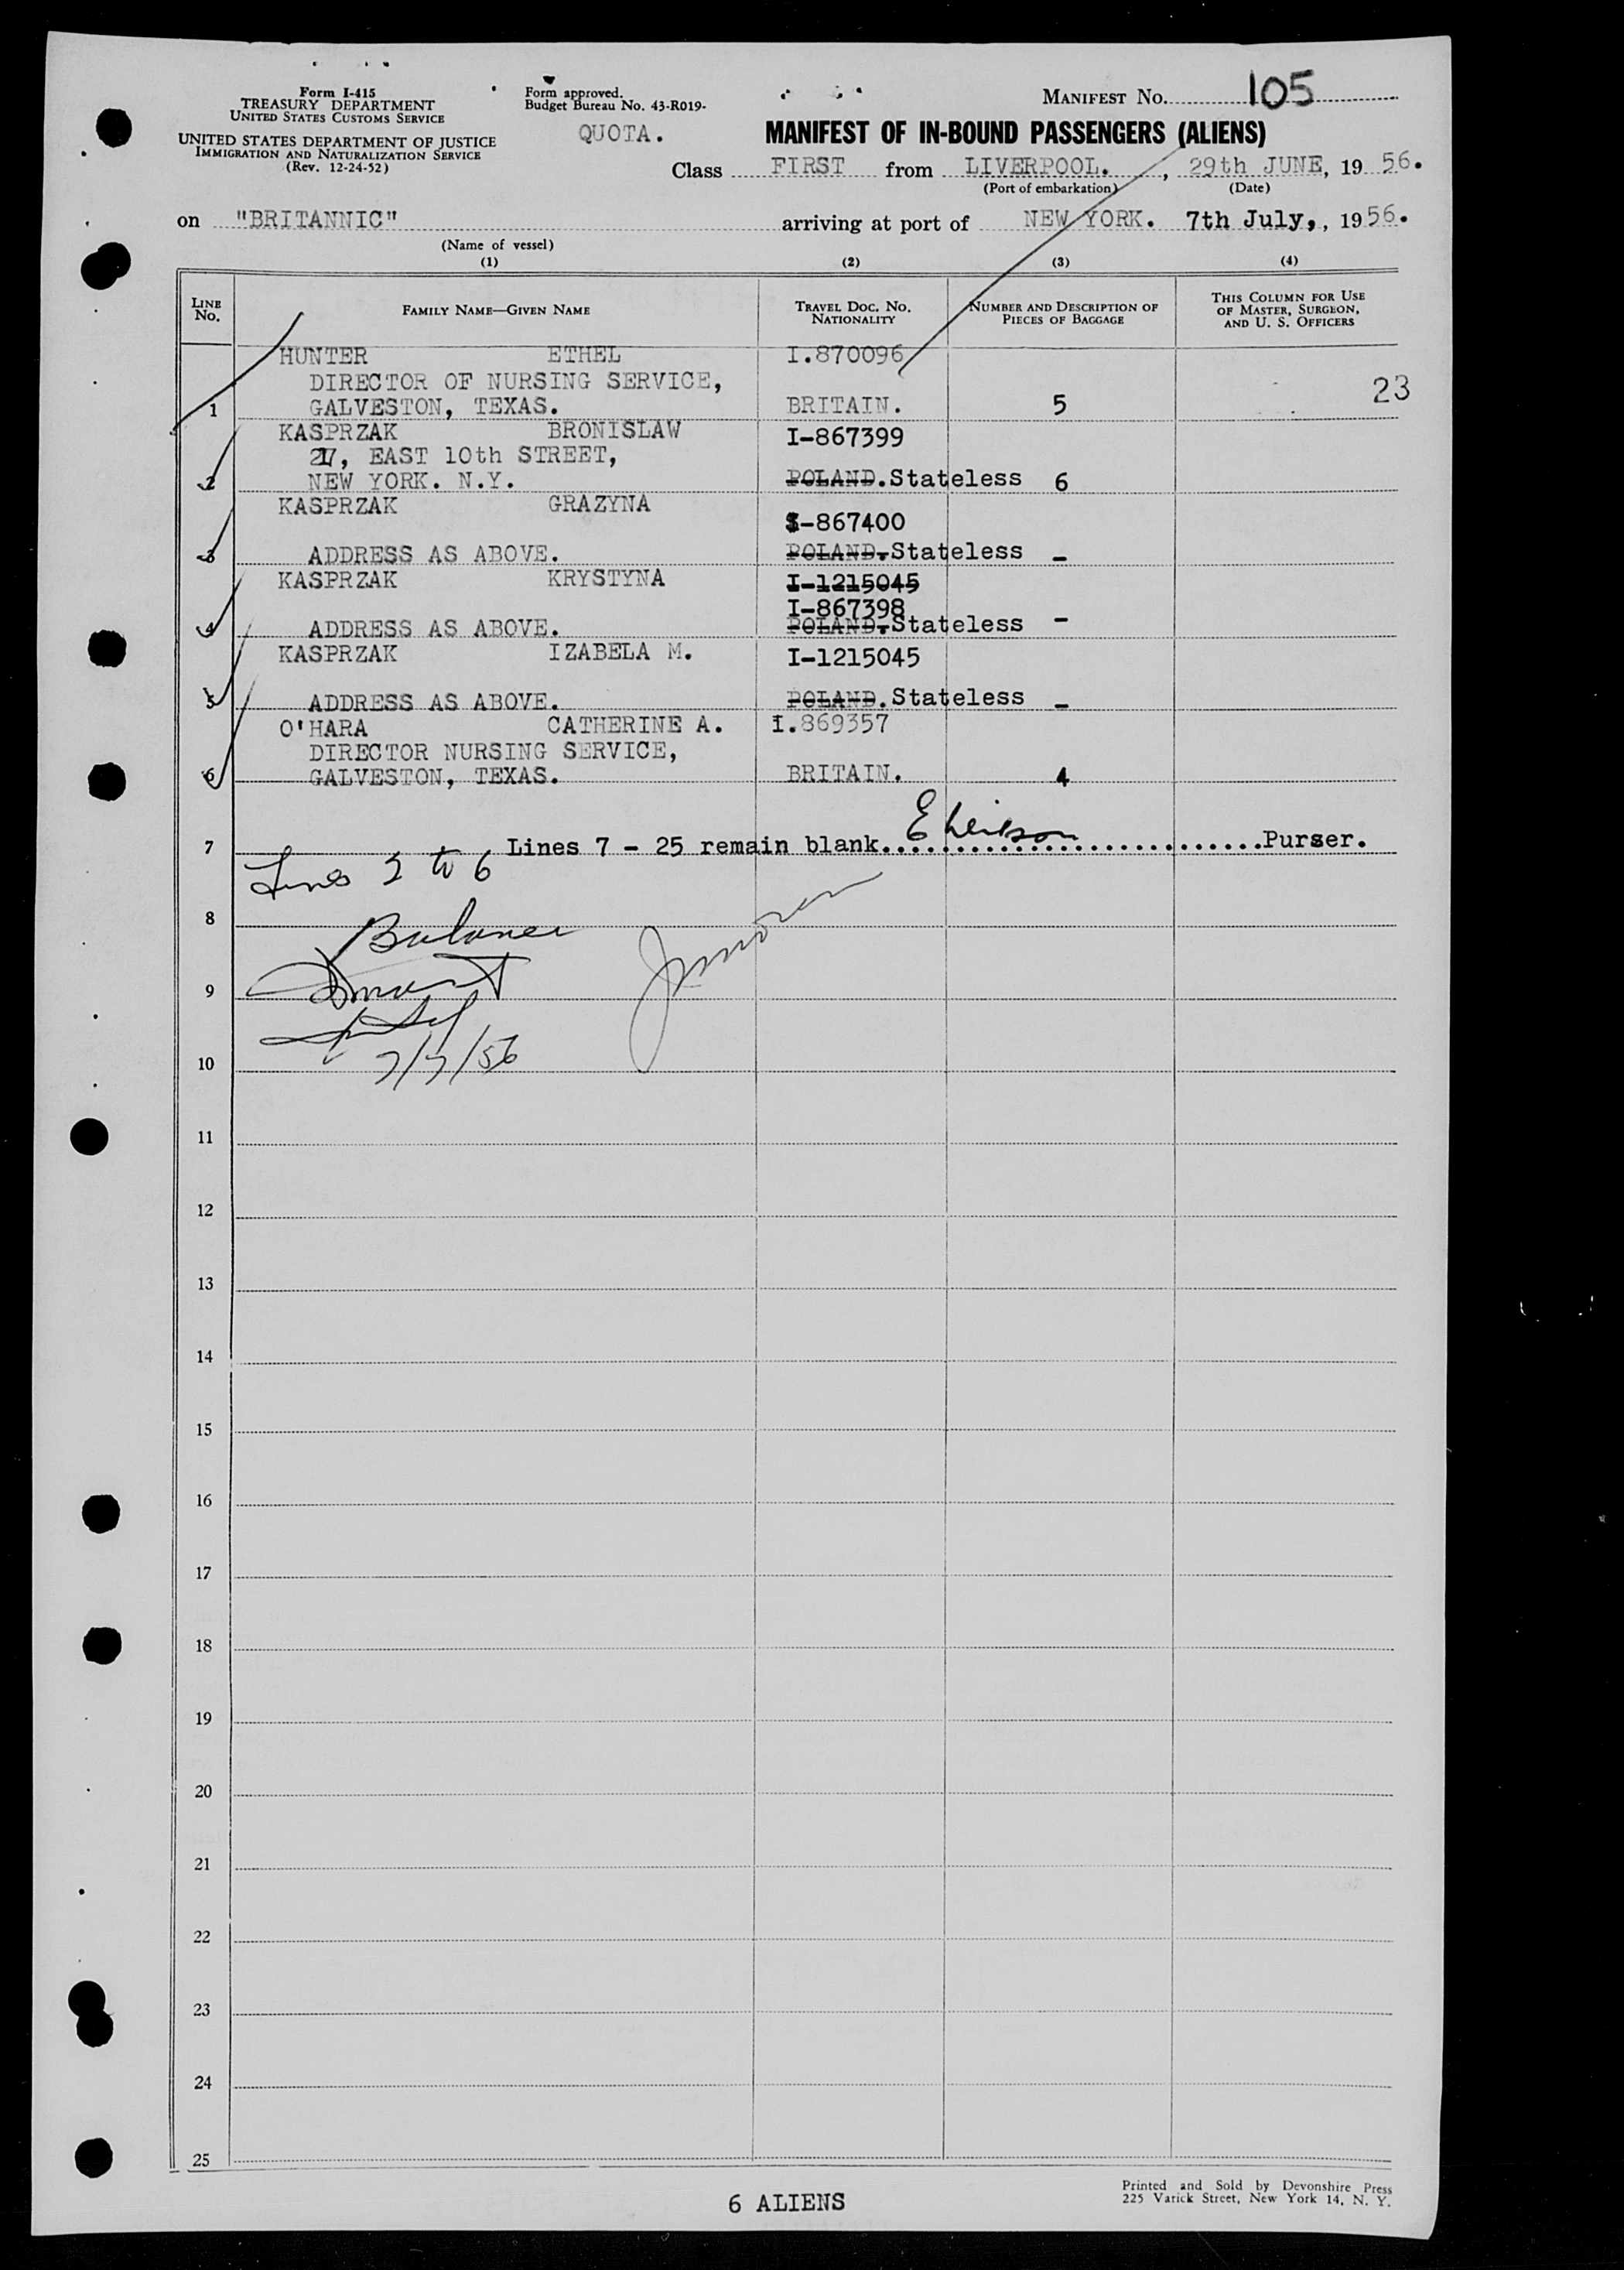 Form I-415
TREASURY DEPARTMENT
UNITED STATES CUSTOMS SERVICE
UNITED STATES DEPARTMENT OF JUSTICE
IMMIGRATION AND NATURALIZATION SERVICE
(Rev. 12-24-52)
Form approved.
Budget Bureau No. 43-R019-
QUOTA.
MANIFEST NO. 105
MANIFEST OF IN-BOUND PASSENGERS (ALIENS)
Class FIRST from LIVERPOOL. , 29th JUNE, 19 56.
(Port of embarkation) (Date)
on "BRITANNIC" arriving at port of NEW YORK. 7th July,, 1956.
(Name of vessel)
(1) (2) (3) (4)
LINE NO. FAMILY NAME—GIVEN NAME TRAVEL DOC. NO. NATIONALITY NUMBER AND DESCRIPTION OF PIECES OF BAGGAGE THIS COLUMN FOR USE OF MASTER, SURGEON, AND U. S. OFFICERS
HUNTER ETHEL I.870096
DIRECTOR OF NURSING SERVICE,
23
1 GALVESTON, TEXAS. BRITAIN. 5
KASPRZAK BRONISLAW I-867399
27, EAST 10th STREET,
2 NEW YORK. N.Y. POLAND. Stateless 6
KASPRZAK GRAZYNA
I-867400
3 ADDRESS AS ABOVE. POLAND. Stateless -
KASPRZAK KRYSTYNA I-1215045
I-867398
4 ADDRESS AS ABOVE. POLAND. Stateless -
KASPRZAK IZABELA M. I-1215045
5 ADDRESS AS ABOVE. POLAND. Stateless -
O'HARA CATHERINE A. I.869357
DIRECTOR NURSING SERVICE,
6 GALVESTON, TEXAS. BRITAIN. 4
7 Lines 7 - 25 remain blank. Purser.
Lines 2 to 6
8
9
10
7/7/56
11
12
13
14
15
16
17
18
19
20
21
22
23
24
25
6 ALIENS
Printed and Sold by Devonshire Press
225 Varick Street, New York 14, N. Y.